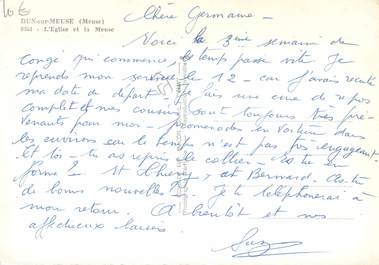 10 €
DUN-sur-MEUSE (Meuse)
8351 - L'Eglise et la Meuse
Chère Germaine -
Voici la 3ème semaine de
congé qui commence, le temps passe vite. Je
reprends mon service le 12 - car j'avais reculé
ma date de départ - Je fais une cure de repos
complet et mes cousins sont toujours très pré-
venants pour moi - promenades en voiture dans
les environs car le temps n'est pas très engageant.
Et toi - tu as repris le collier - Es tu en
forme ? et Thierry, et Bernard. As-tu
de bonnes nouvelles ? Je te téléphonerai à
mon retour. A bientôt et mes
affectueux baisers
Suz